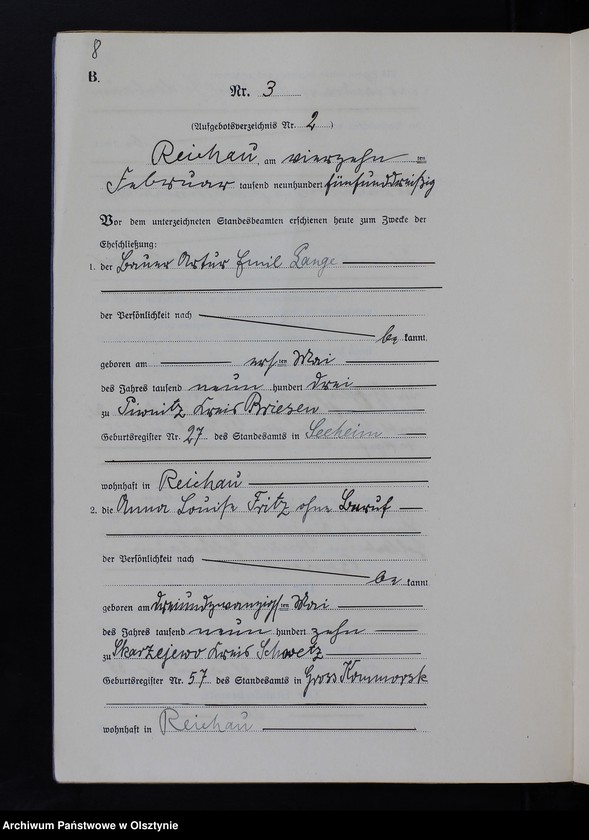 8
B.
Nr. 3
(Aufgebotsverzeichnis Nr. 2)
Reichau, am vierzehn ten
Februar tausend neunhundert fünfunddreißig
Vor dem unterzeichneten Standesbeamten erschienen heute zum Zwecke der
Eheschließung:
1. der Bauer Artur Emil Lange
der Persönlichkeit nach
be kannt.
geboren am ersten Mai
des Jahres tausend neun hundert drei
zu Piwnitz Kreis Briesen
Geburtsregister Nr. 27 des Standesamts in Seeheim
wohnhaft in Reichau
2. die Anna Louise Fritz ohne Beruf
der Persönlichkeit nach
be kannt
geboren am dreiundzwanzigsten Mai
des Jahres tausend neun hundert zehn
zu Skarzejewo Kreis Schwetz
Geburtsregister Nr. 57 des Standesamts in Gross Kommorsk
wohnhaft in Reichau
Archiwum Państwowe w Olsztynie